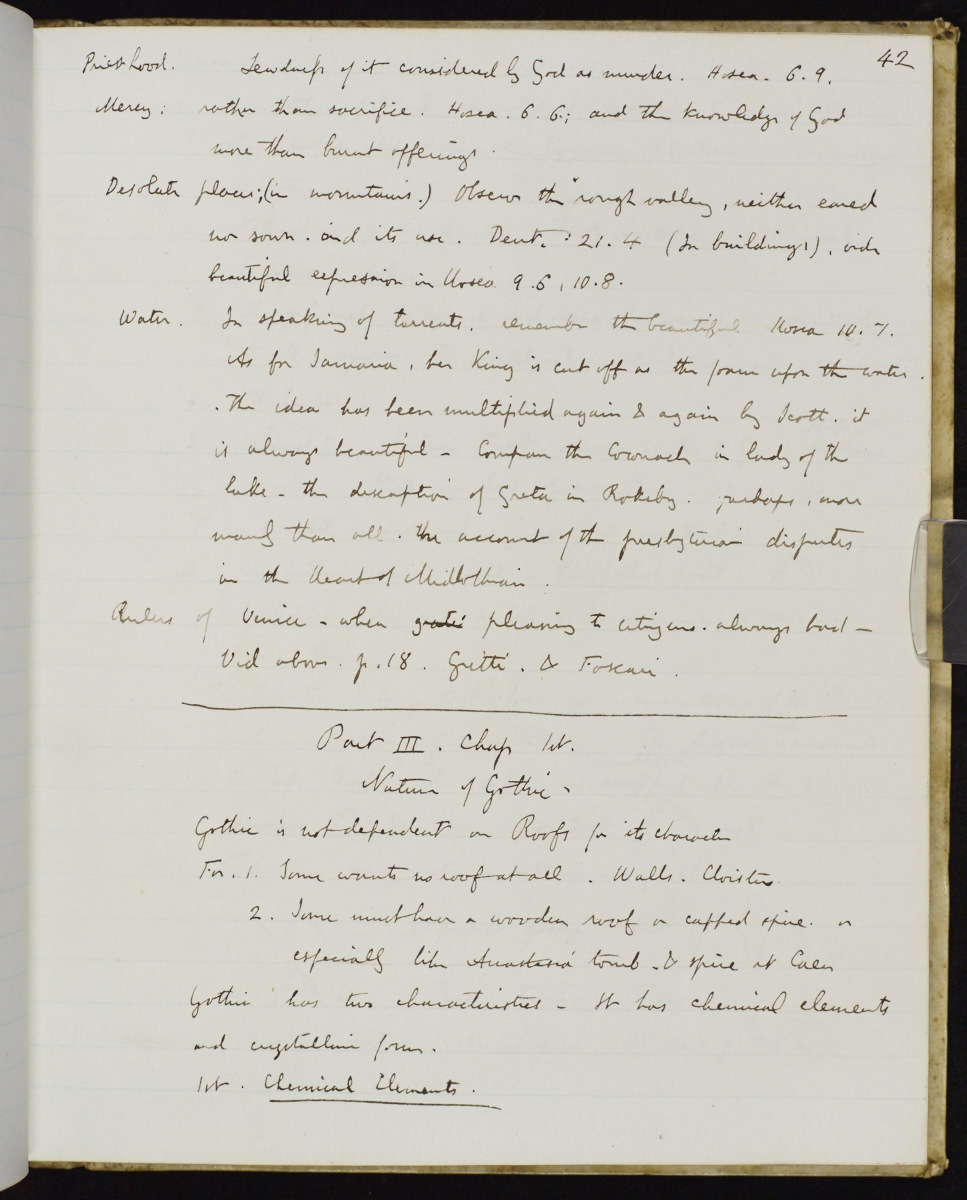 42
Priesthood. Lewdness of it considered by God as murder. Hosea. 6. 9.
Mercy: rather than sacrifice. Hosea. 6. 6.; and the knowledge of God
more than burnt offerings.
Desolate places; (in mountains.) Observe the "rough valley, neither eared
nor sown. and its use. Deut. 21. 4 (In buildings), vide
beautiful expression in Hosea 9. 6, 10. 8.
Water. In speaking of torrents. remember the beautiful Hosea 10. 7.
As for Samaria, her King is cut off as the foam upon the water.
The idea has been multiplied again & again by Scott. it
is always beautiful - Compare the Coronach in lady of the
lake - the description of Greta in Rokeby. perhaps, more
than all. the account of the presbyterian disputes
in the Heart of Midlothian.
Rulers of Venice - when pleasing to citizens. always bad -
Vid above. p. 18. Gritti. & Foscari.
Part III. Chap 1st.
Nature of Gothic -
Gothic is not dependent on Roofs for its character
For. 1. Some wants no roof at all. Walls. Cloisters.
2. Some must have a wooden roof or capped spire. or
especially like Anastasia tomb - & spire at Caen
Gothic has two characteristics - It has chemical elements
and crystalline form.
1st. Chemical Elements.